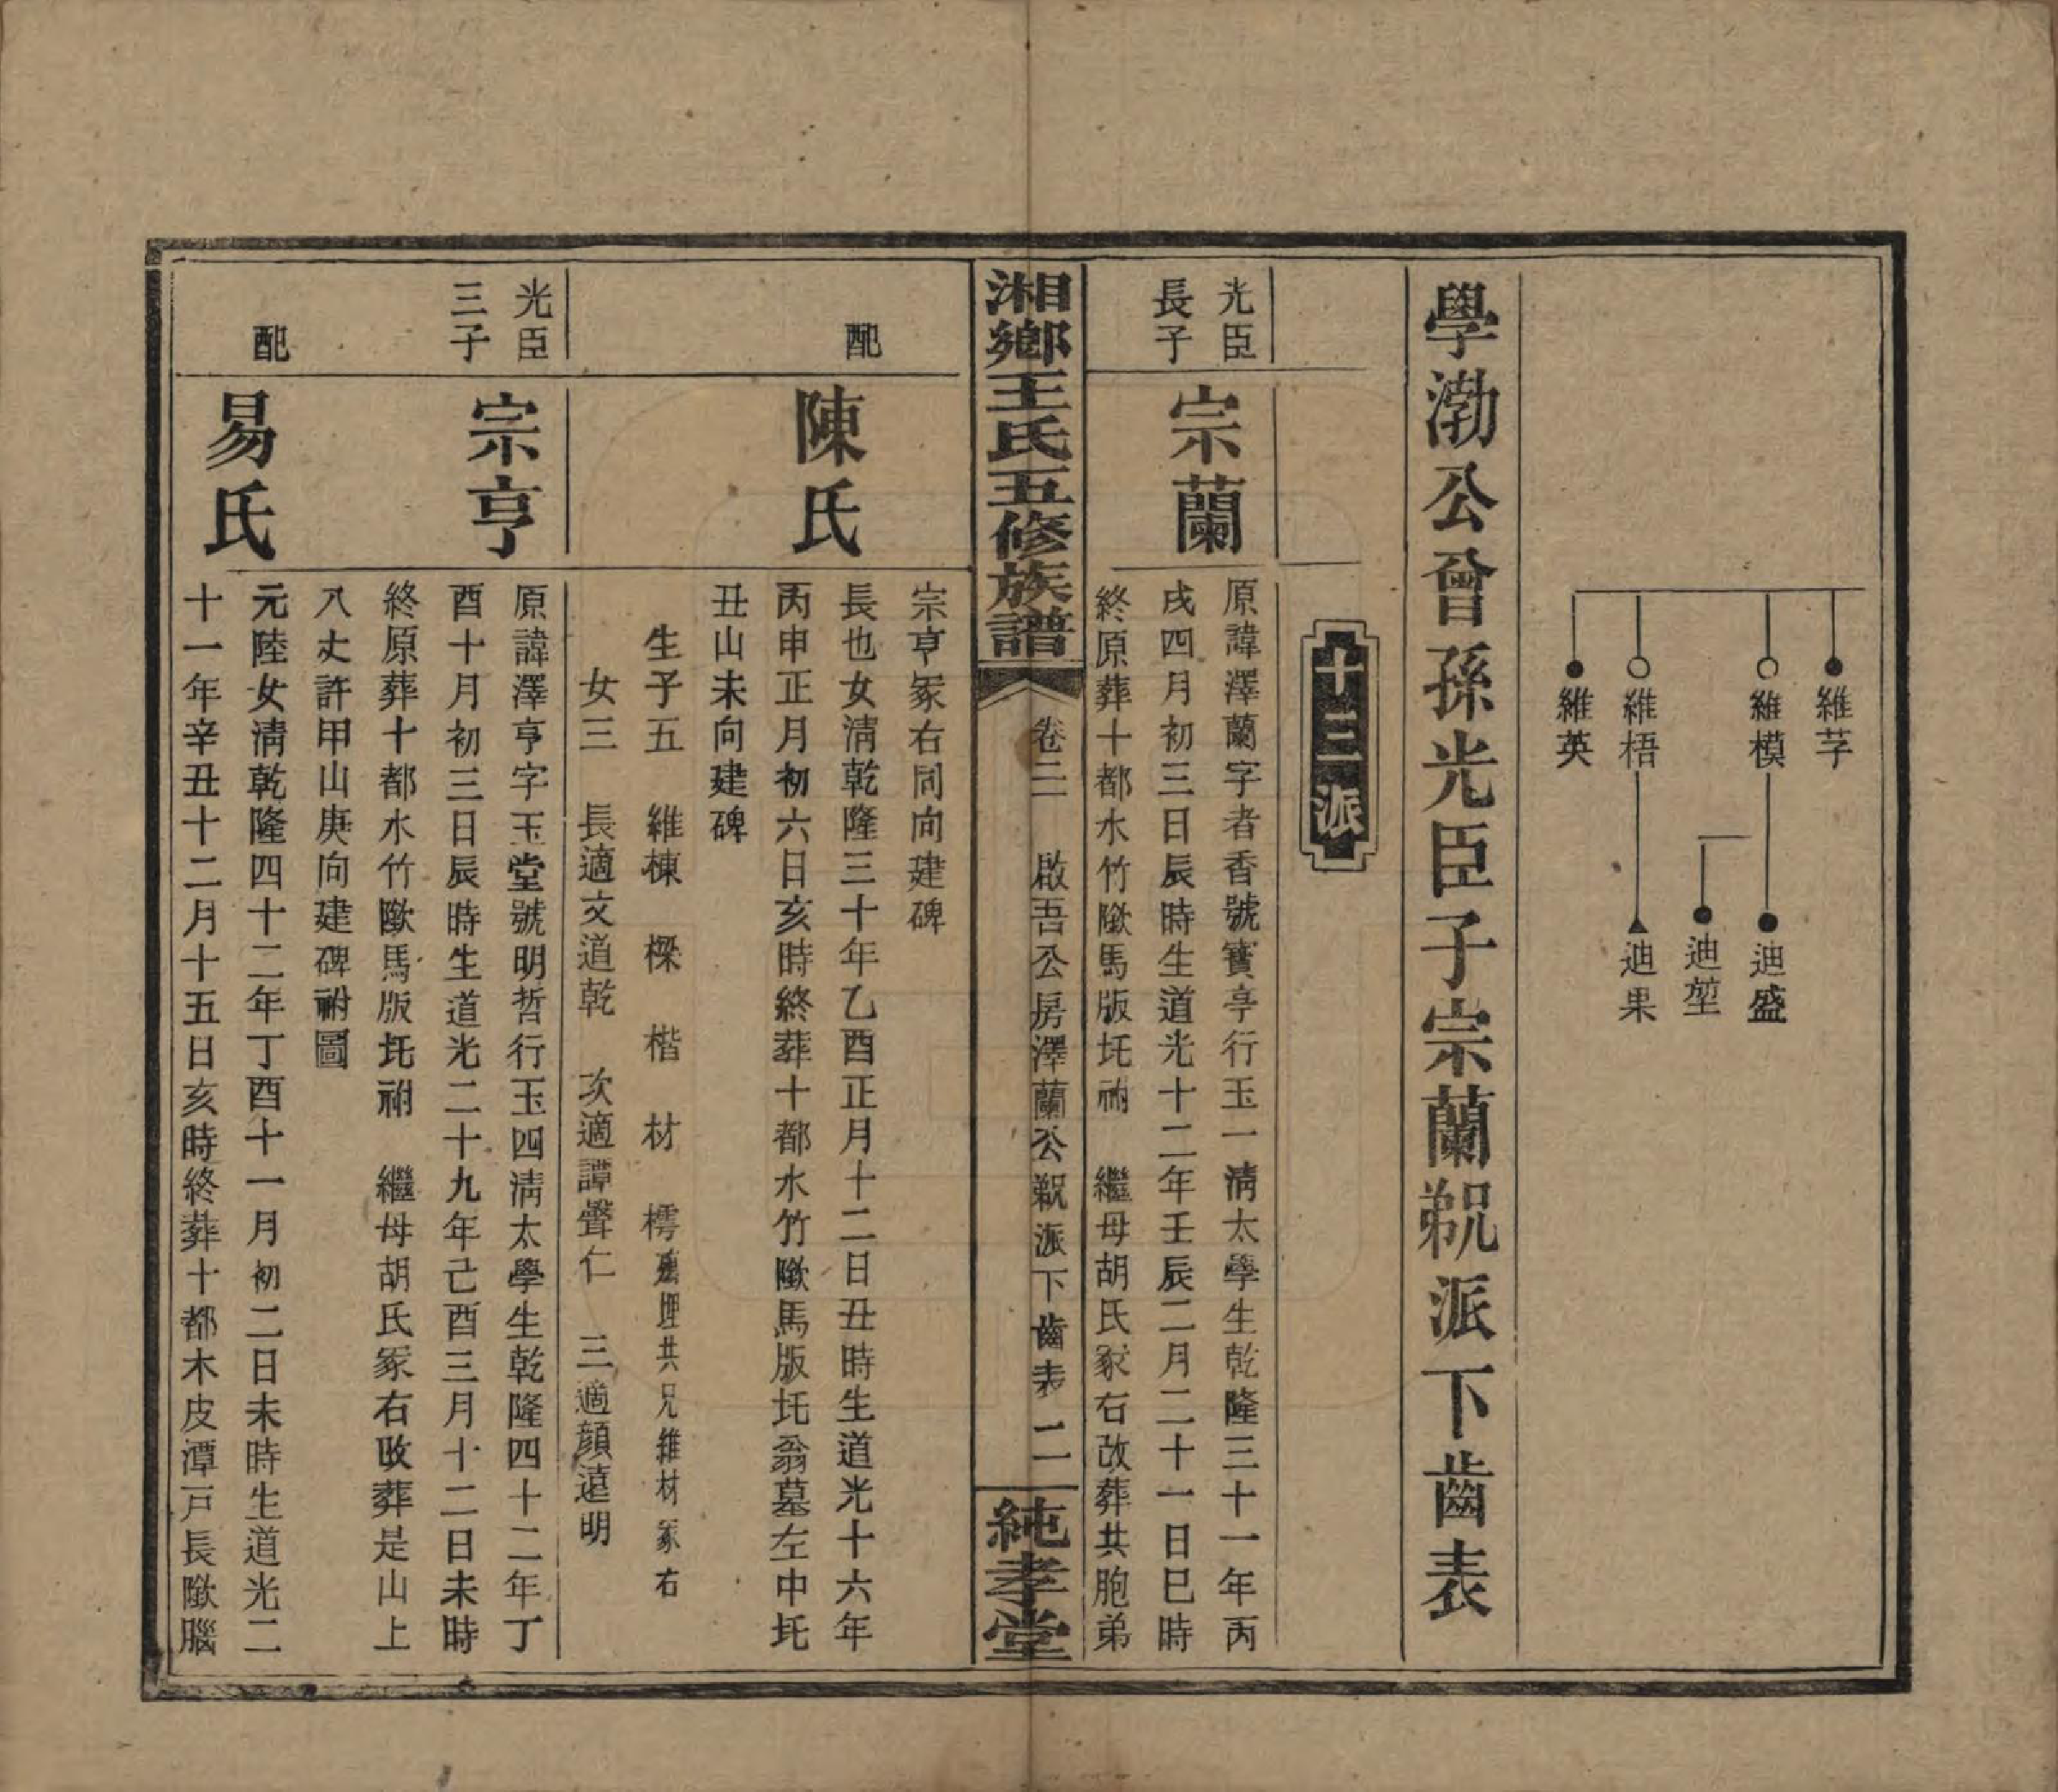 維芓
維模
迪盛
迪堃
維梧
迪果
維英
學渤公曾孫光臣子宗蘭覣派下齒表
十三派
光臣
長子
宗蘭
原諱澤蘭字者香號寳亭行玉一淸太學生乾隆三十一年丙
戌四月初三日辰時生道光十二年壬辰二月二十一日巳時
終原葬十都水竹隞馬版圫祔　繼母胡氏冢右改葬共胞弟
湘鄉王氏五修族譜
卷二　啟吾公房澤蘭公派下齒表　二
純孝堂
宗亨冢右同向建碑
配
陳氏
長也女淸乾隆三十年乙酉正月十二日丑時生道光十六年
丙申正月初六日亥時終葬十都水竹隞馬版圫翁墓左中圫
丑山未向建碑
生子五　維棟　樑　楷　材　樗　共兄維材冢右
女三　長適文道乾　次適譚聲仁　三適顔遠明
光臣
三子
宗亨
原諱澤亨字玉堂號明哲行玉四淸太學生乾隆四十二年丁
酉十月初三日辰時生道光二十九年己酉三月十二日未時
終原葬十都水竹隞馬版圫祔　繼母胡氏冢右改葬是山上
八丈許甲山庚向建碑祔圖
配
易氏
元陸女淸乾隆四十二年丁酉十一月初二日未時生道光二
十一年辛丑十二月十五日亥時終葬十都木皮潭戸長隞腦